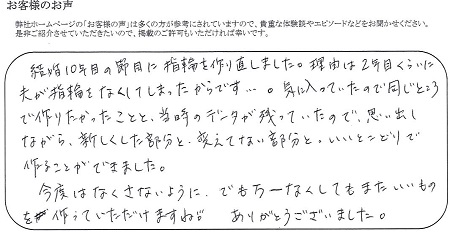 お客様のお声
弊社ホームページの「お客様の声」は多くの方が参考にされていますので、貴重な体験談やエピソードなどをお聞かせください。
是非ご紹介させていただきたいので、掲載のご許可もいただければ幸いです。
結婚10年目の節目に指輪を作り直しました。理由は2年目くらいに
夫が指輪をなくしてしまったからです…。気に入っていたので同じところ
で作りたかったことと、当時のデータが残っていたので、思い出し
ながら、新しくした部分と、変えてない部分と。いいとこどりで
作ることができました。
今度はなくさないように、でも万一なくしてもまたいいもの
を作っていただけますね!! ありがとうございました。